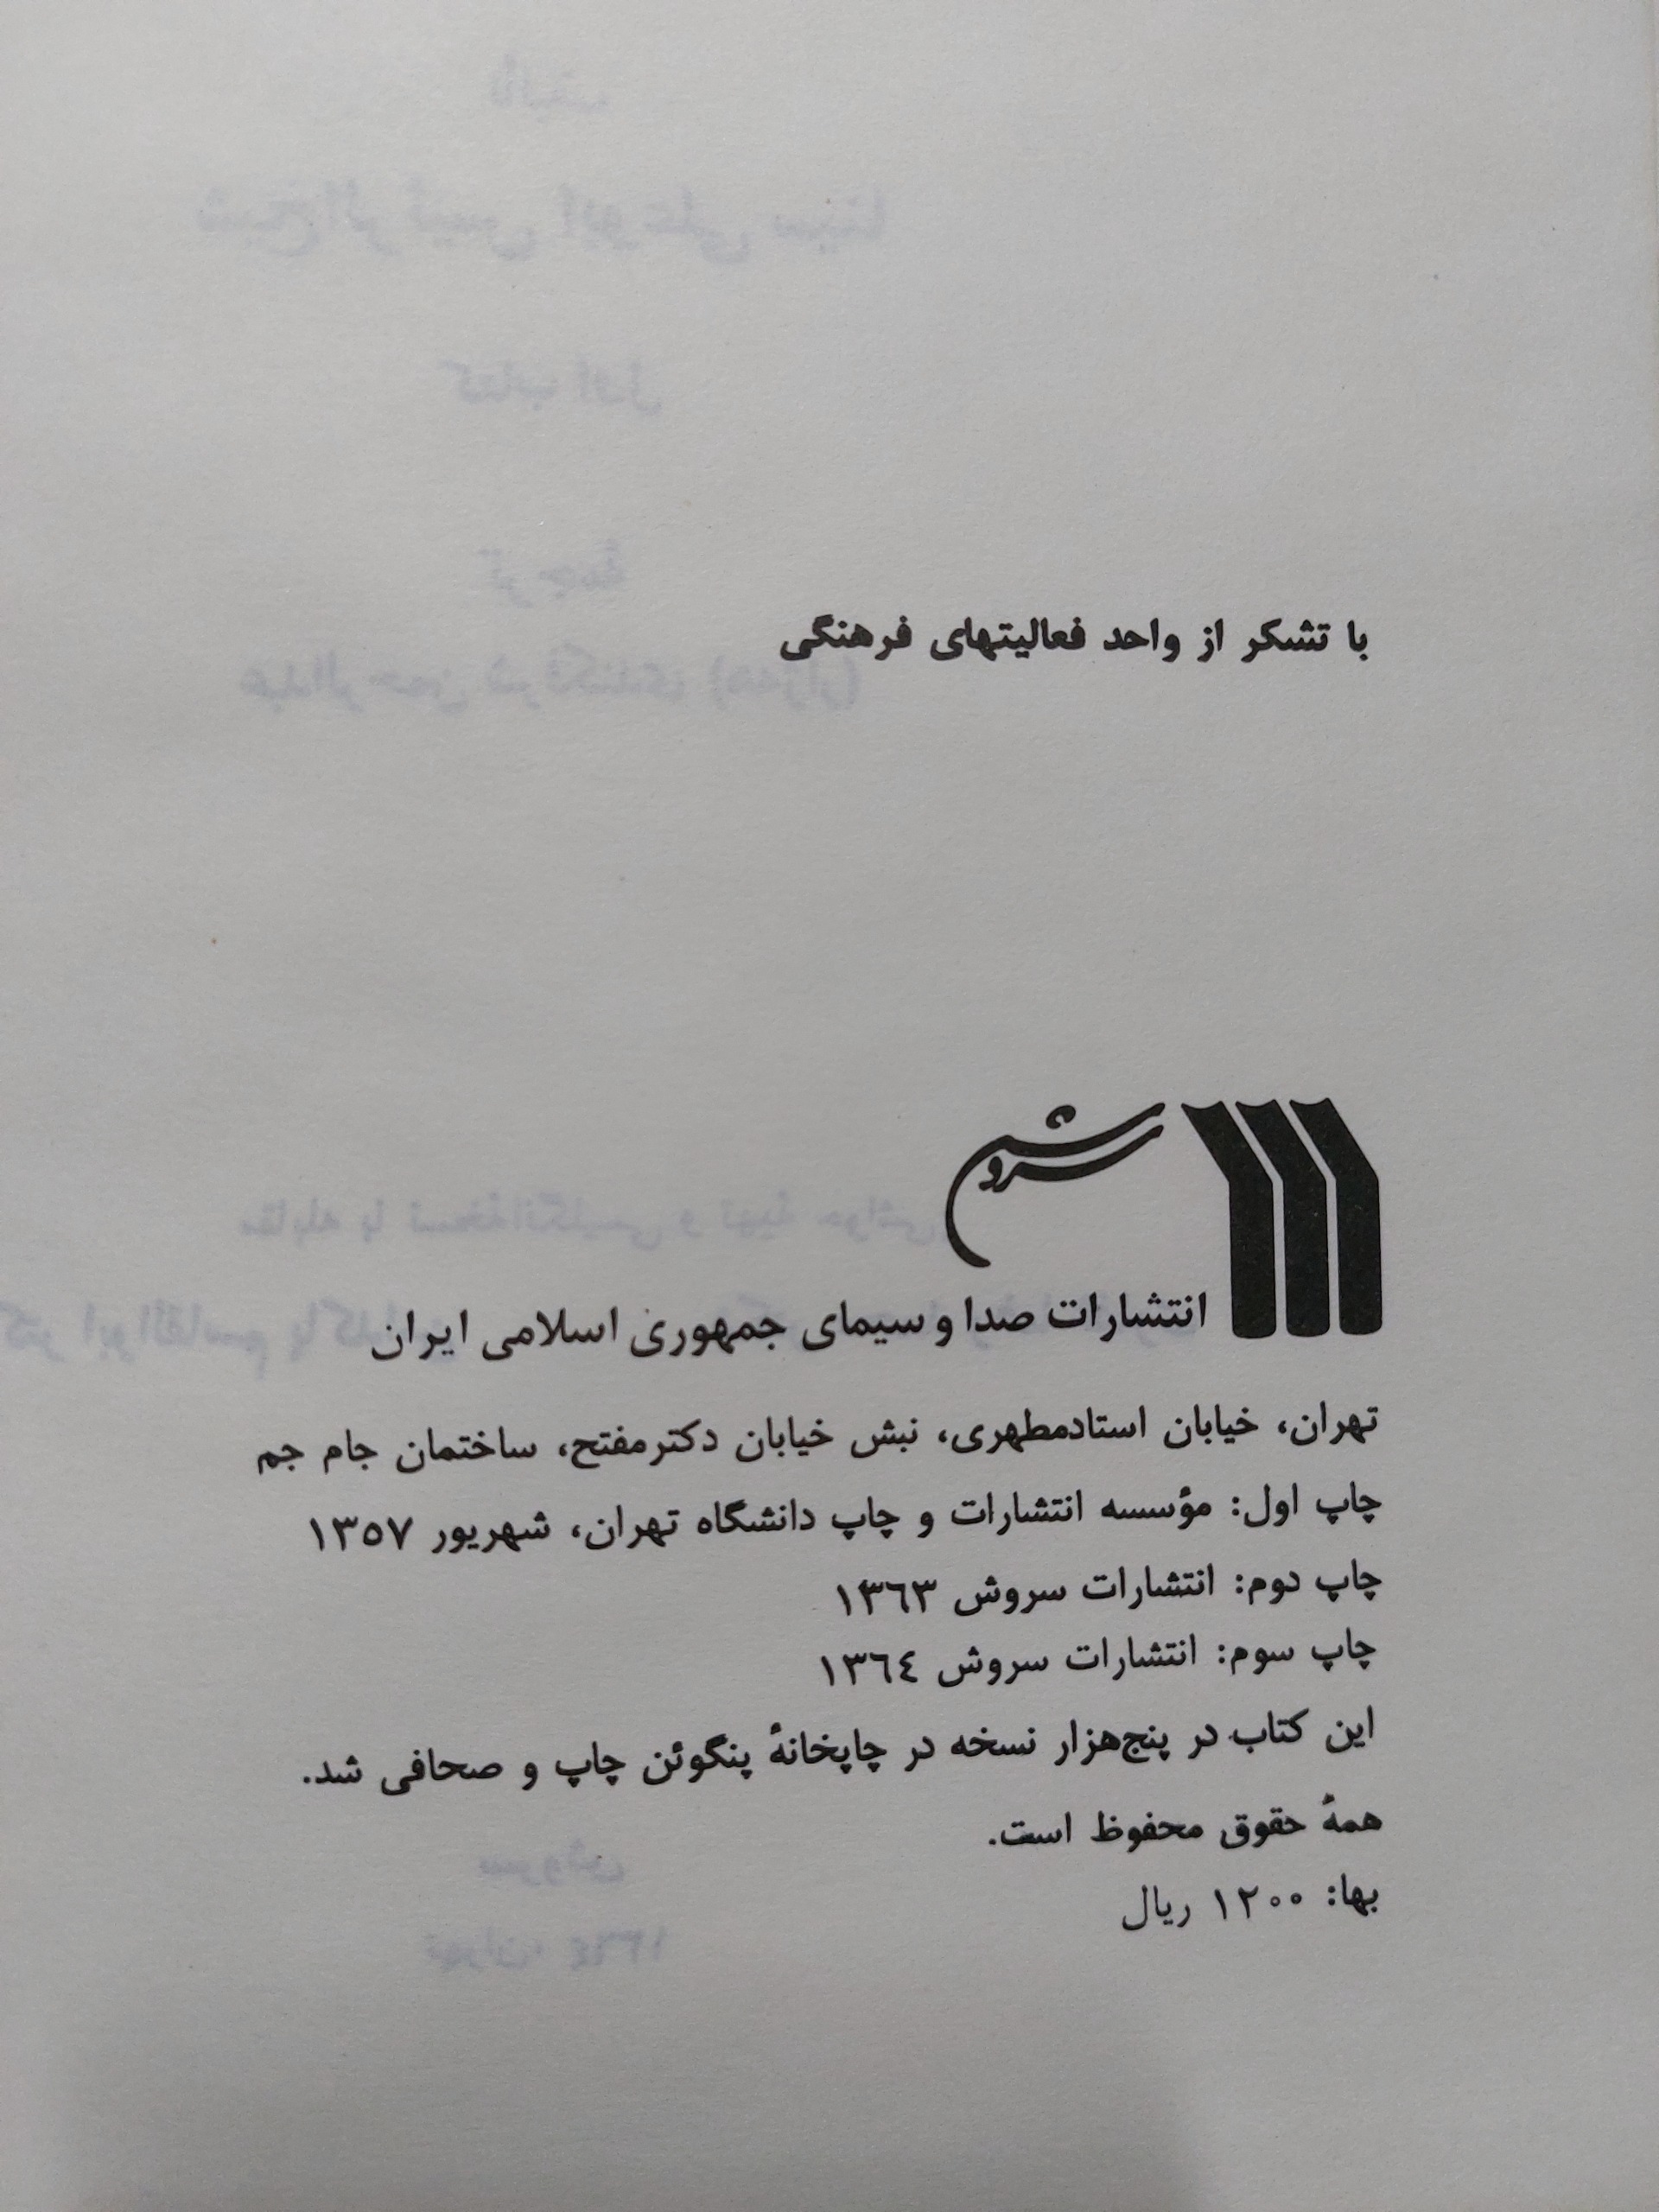 با تشکر از واحد فعالیتهای فرهنگی
سروش
انتشارات صدا و سیمای جمهوری اسلامی ایران
تهران، خیابان استادمطهری، نبش خیابان دکترمفتح، ساختمان جام جم
چاپ اول: مؤسسه انتشارات و چاپ دانشگاه تهران، شهریور ۱۳۵۷
چاپ دوم: انتشارات سروش ۱۳٦۳
چاپ سوم: انتشارات سروش ۱۳٦٤
این کتاب در پنج‌هزار نسخه در چاپخانهٔ پنگوئن چاپ و صحافی شد.
همهٔ حقوق محفوظ است.
بها: ۱۲۰۰ ریال